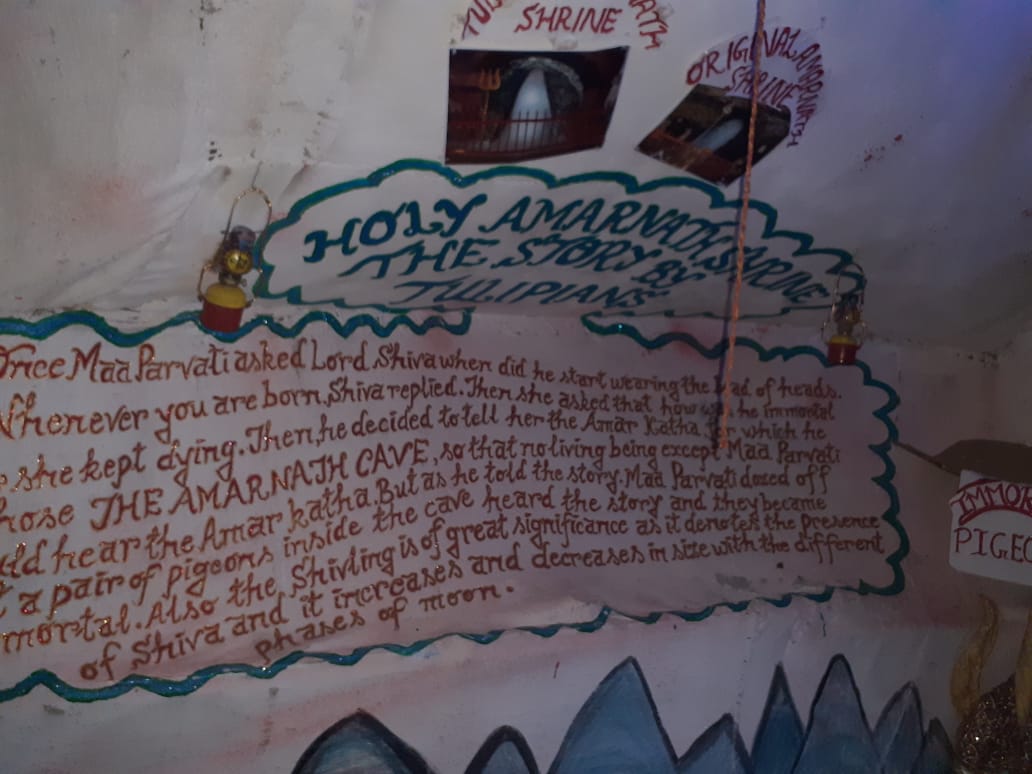 SHRINE
ORIGINAL AMARNATH
SHRINE
HOLY AMARNATH SHRINE
THE STORY BY
TULIPIANS
Once Maa Parvati asked Lord Shiva when did he start wearing the ad of heads.
Whenever you are born, Shiva replied. Then she asked that how he immortal
she kept dying. Then, he decided to tell her the Amar Katha, for which he
hose THE AMARNATH CAVE, so that no living being except Maa Parvati
uld hear the Amar katha. But as he told the story, Maa Parvati dozed off
a pair of pigeons inside the cave heard the story and they became
mortal. Also the Shivling is of great significance as it denotes the presence
of Shiva and it increases and decreases in size with the different
phases of moon.
IMMO
PIGEO